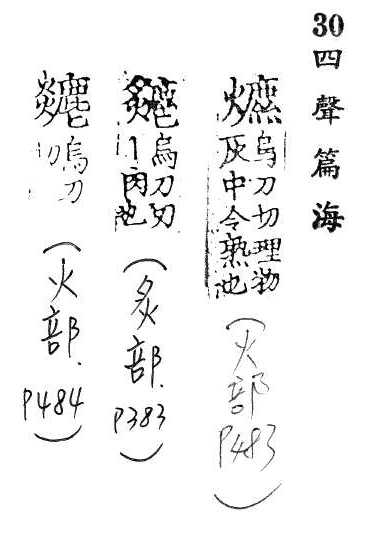 30四聲篇海
爊
烏刀切理物
灰中令熟也
(火部P483)
烏刀切
丨肉也
(炙部.P383)
烏刀
切
(火部.P484)